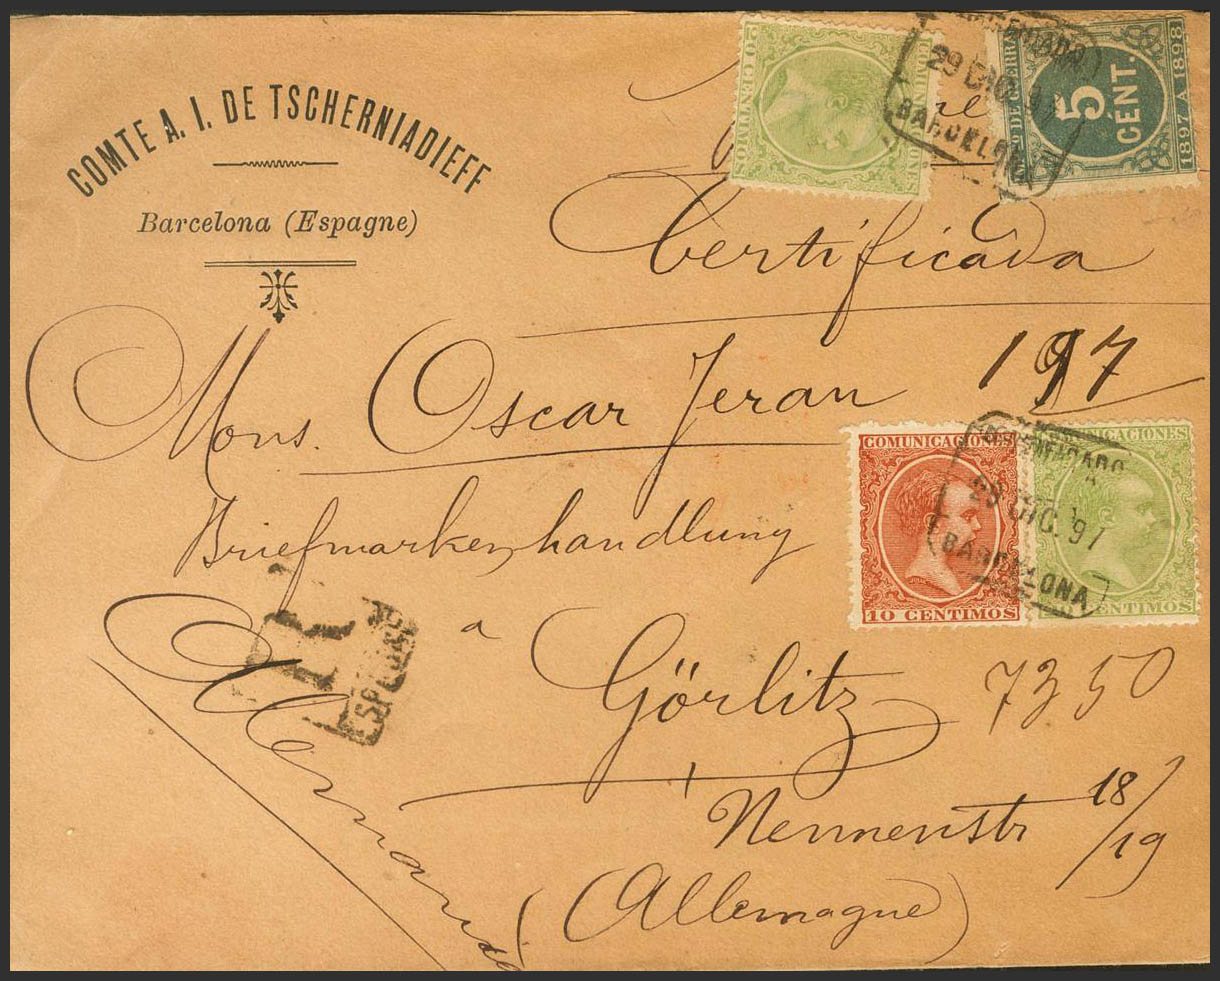 COMTE A. I. DE TSCHERNIADIEFF
Barcelona (Espagne)
20 CENTIMOS
29 DIC. 97
BARCELONA
Nº DE GUERRA
5
CENT.
1897 A 1898
Certificada
197
Mons. Oscar Jeran
Briefmarkenhandlung
a
Görlitz
7350
18/19
(Allemagne)
COMUNICACIONES
10 CENTIMOS
CERTIFICADO
29 DIC. 97
BARCELONA
CENTIMOS